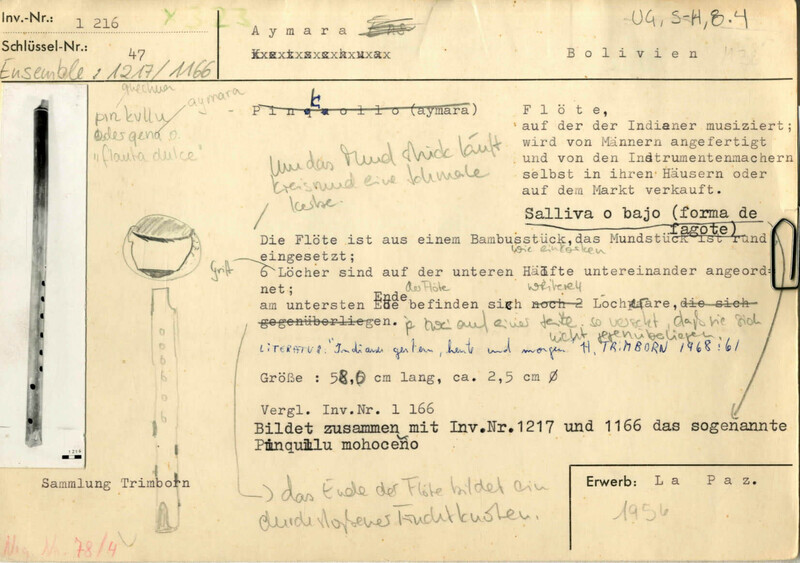 Inv.-Nr.: 1 216
Schlüssel-Nr.: 47
Ensemble: 1217/1166
X 323
Aymara
Bolivien
UG, S=H, 8.4
quechua
pinkullu
aymara
oder qena o
"flauta dulce"
Pinquollo (aymara)
k
Flöte,
auf der der Indianer musiziert;
wird von Männern angefertigt
und von den Instrumentenmachern
selbst in ihren Häusern oder
auf dem Markt verkauft.
Um das Mundstück läuft
kreisrund eine schmale
Kerbe.
Salliva o bajo (forma de
fagote)
Die Flöte ist aus einem Bambusstück, das Mundstück ist rund
eingesetzt;
6 Löcher sind auf der unteren Hälfte untereinander angeord=
net;
der Flöte weitere 4
am untersten Ende befinden sich noch 2 Lochpaare, die sich
gegenüberliegen. je zwei auf einer Seite, so versetzt, daß sie sich
nicht gegenüberliegen.
LITERATUR: "Indianer gestern, heute und morgen" H. TRIMBORN 1968:61
Größe : 58,0 cm lang, ca. 2,5 cm Ø
Vergl. Inv.Nr. 1 166
Bildet zusammen mit Inv.Nr.1217 und 1166 das sogenannte
Pinquillu mohoceño
Sammlung Trimborn
das Ende der Flöte bildet ein
durchstoßener Fruchtknoten.
Erwerb: La Paz.
1956
Neg. Nr. 78/4
1216